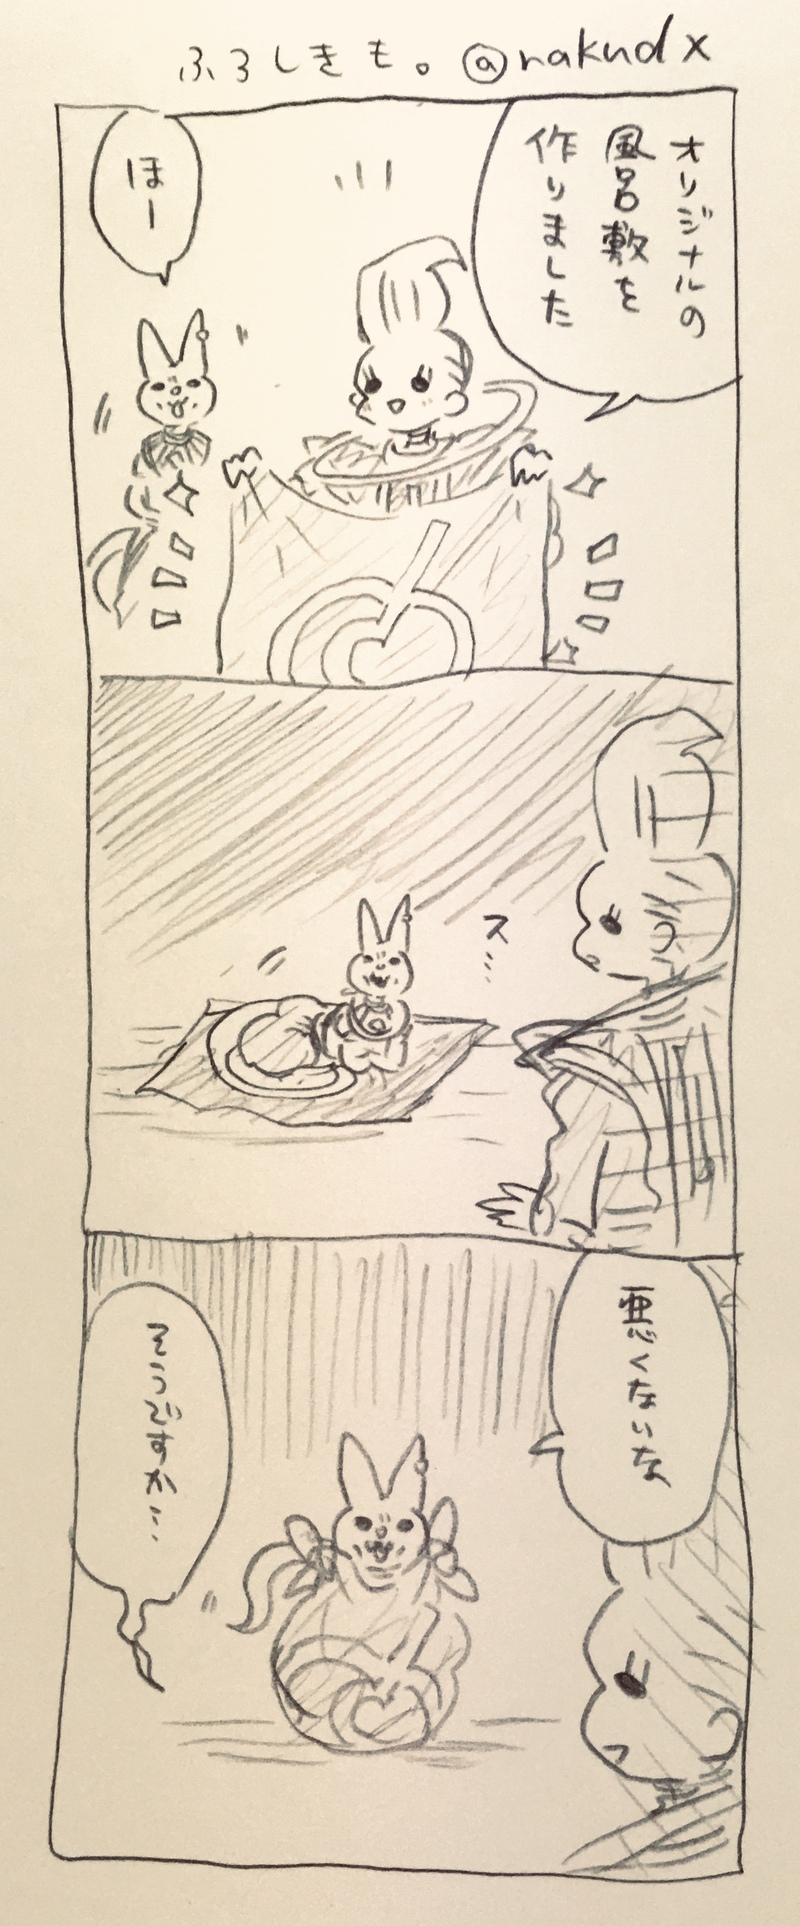 ふろしきも。@nakundx
オリジナルの
風呂敷を
作りました
ほー
ス…
悪くないな
そうですか…